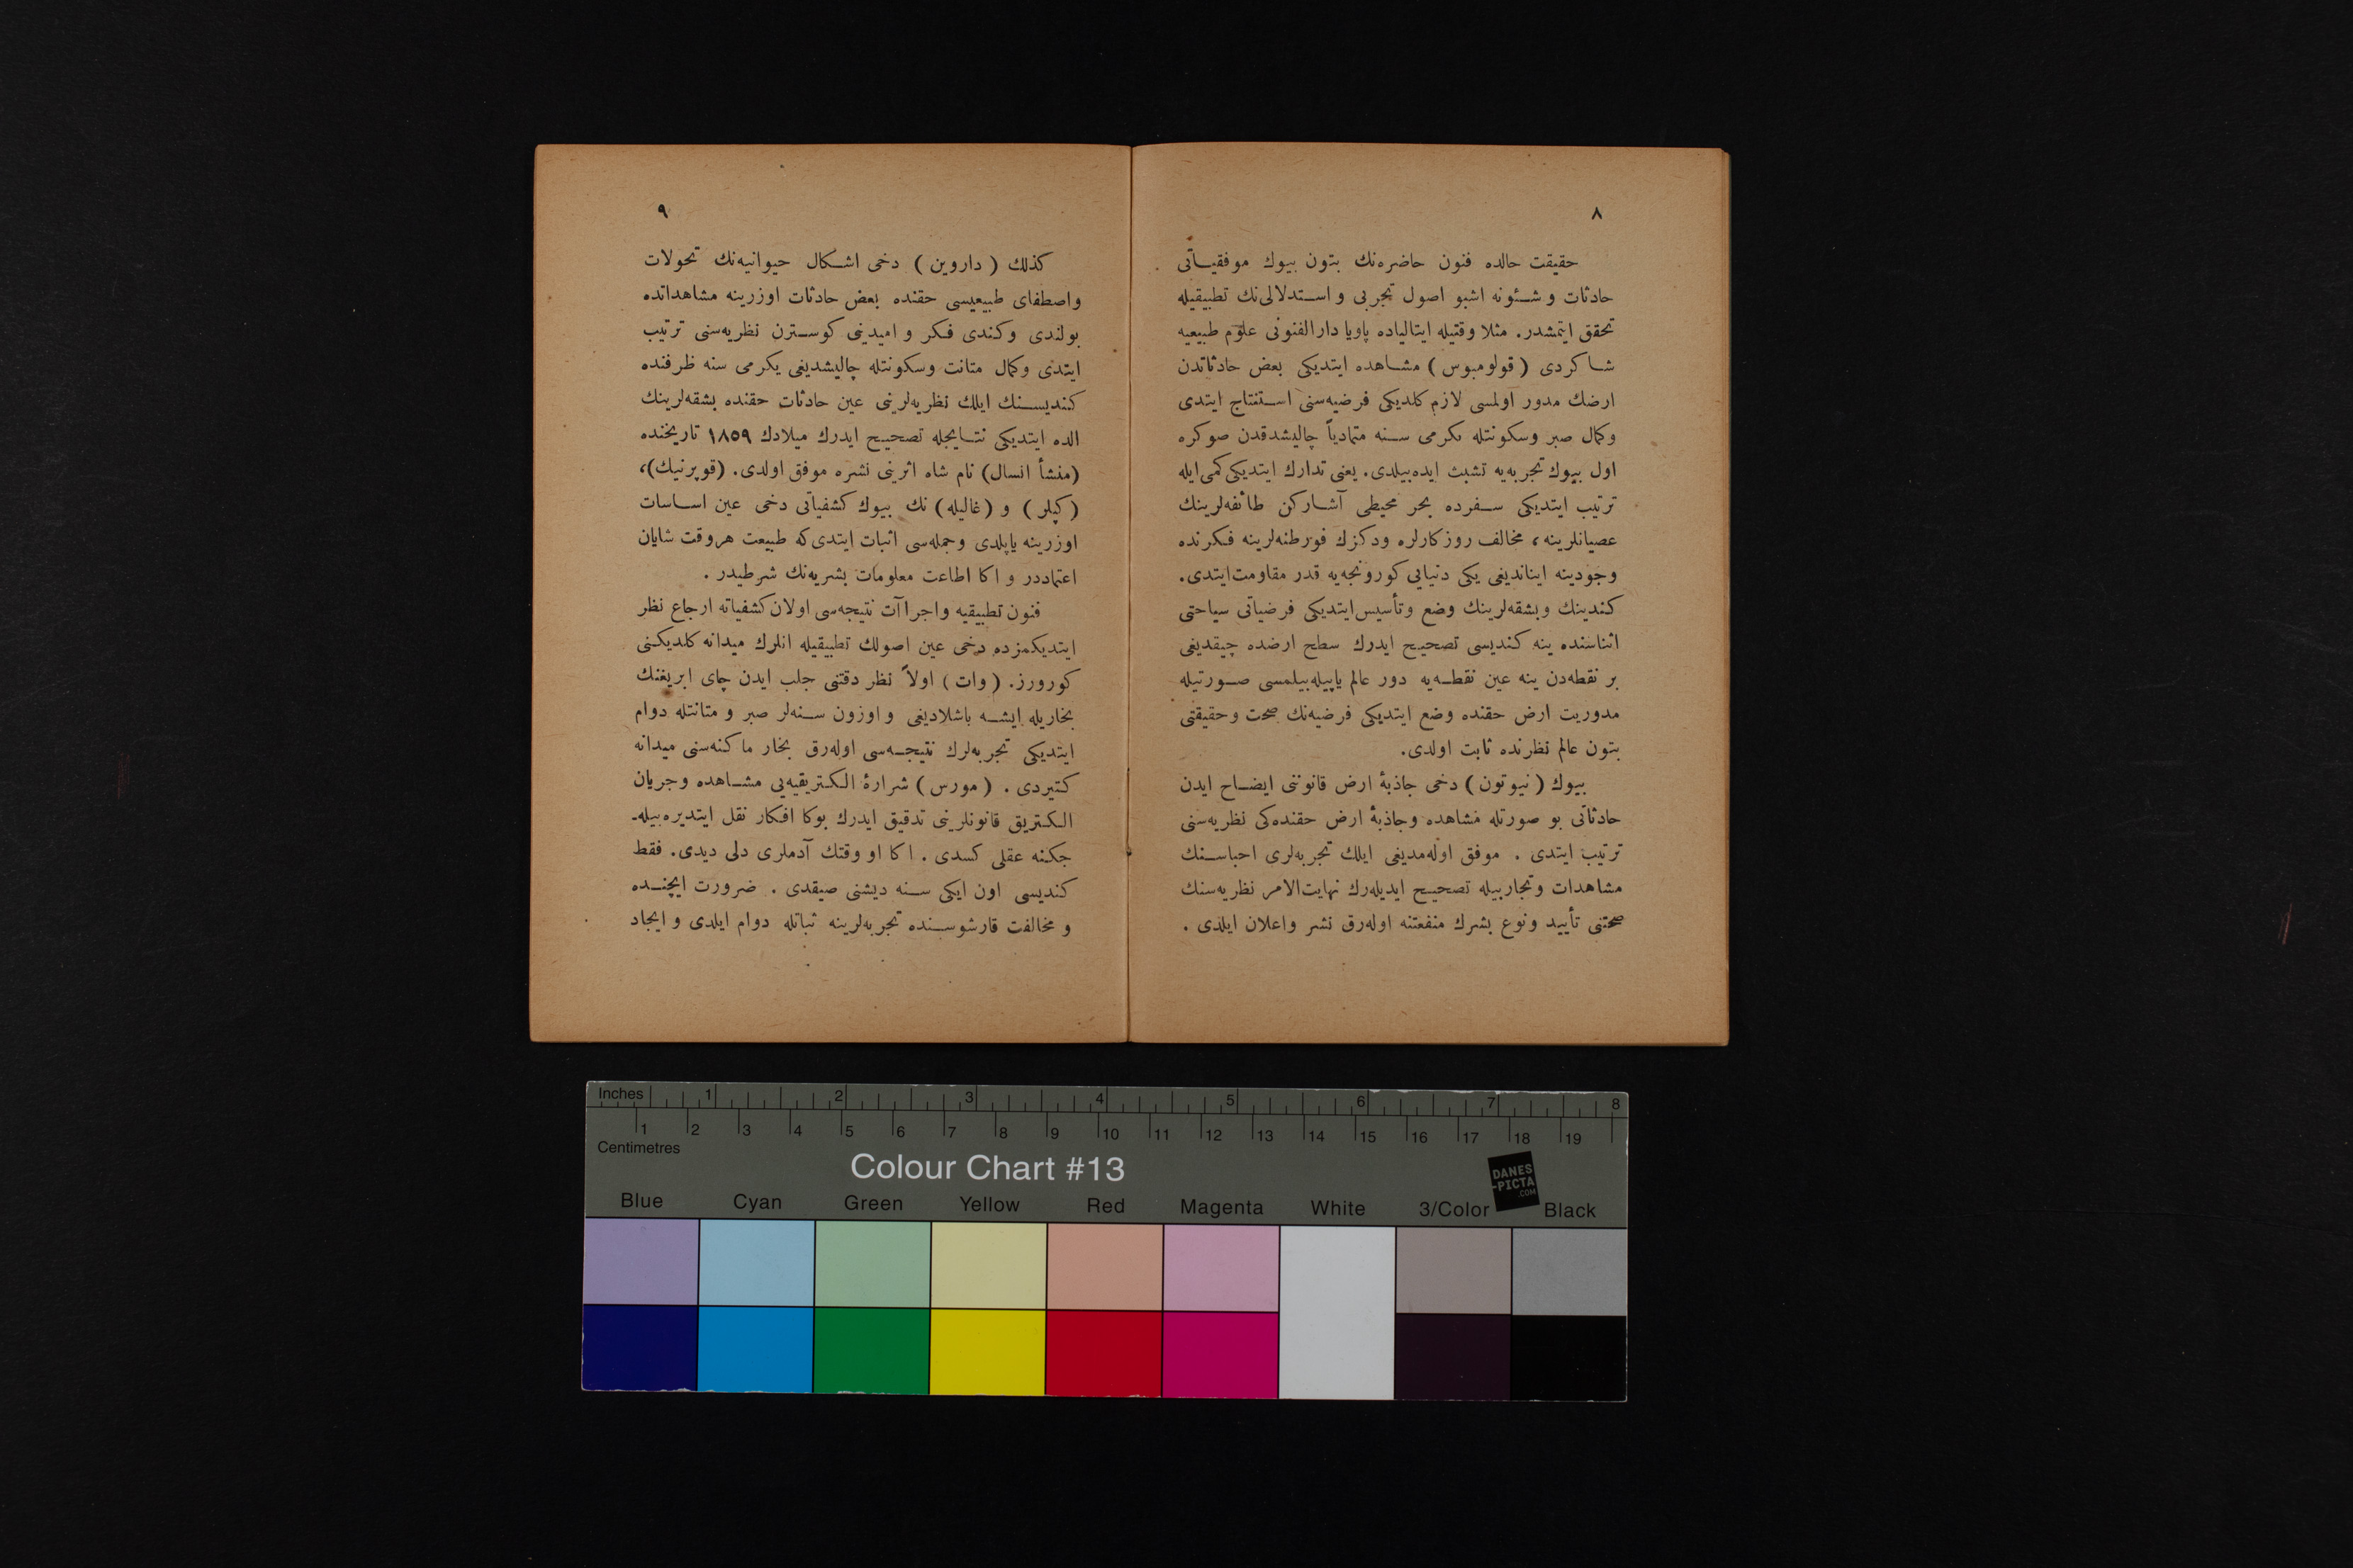 ٨
حقیقت حالده فنون حاضره‌نك بتون بیوك موفقیاتی
حادثات و شئونه اشبو اصول تجربی و استدلالی‌نك تطبیقیله
تحقق ایتمشدر. مثلا وقتیله ایتالیاده پاویا دارالفنونی علوم طبیعیه
شاکردی (قولومبوس) مشاهده ایتدیکی بعض حادثاتدن
ارضك مدور اولمسی لازم کلدیکی فرضیه‌سنی استنتاج ایتدی
وکمال صبر وسکونتله یکرمی سنه متمادیاً چالیشدقدن صوکره
اول بیوك تجربه‌یه تشبث ایده‌بیلدی. یعنی تدارك ایتدیکی کمی ایله
ترتیب ایتدیکی سفرده بحر محیطی آشارکن طائفه‌لرینك
عصیانلرینه، مخالف روزکارلره ودکزك فورطنه‌لرینه فکرنده
وجودینه ایناندیغی یکی دنیایی کورونجه‌یه قدر مقاومت ایتدی.
کندینك وبشقه‌لرینك وضع وتأسیس ایتدیکی فرضیاتی سیاحتی
اثناسنده ینه کندیسی تصحیح ایدرك سطح ارضده چیقدیغی
بر نقطه‌دن ینه عین نقطه‌یه دور عالم یاپیله‌بیلمسی صورتیله
مدوریت ارض حقنده وضع ایتدیکی فرضیه‌نك صحت وحقیقتی
بتون عالم نظرنده ثابت اولدی.
بیوك (نیوتون) دخی جاذبۀ ارض قانوننی ایضاح ایدن
حادثاتی بو صورتله مشاهده وجاذبۀ ارض حقنده‌کی نظریه‌سنی
ترتیب ایتدی. موفق اوله‌مدیغی ایلك تجربه‌لری احباسنك
مشاهدات وتجاربیله تصحیح ایدیله‌رك نهایت‌الامر نظریه‌سنك
صحتنی تأیید ونوع بشرك منفعتنه اوله‌رق نشر واعلان ایلدی.
٩
کذلك (داروین) دخی اشکال حیوانیه‌نك تحولات
واصطفای طبیعیسی حقنده بعض حادثات اوزرینه مشاهداتده
بولندی وکندی فکر و امیدینی کوسترن نظریه‌سنی ترتیب
ایتدی وکمال متانت وسکونتله چالیشدیغی یکرمی سنه ظرفنده
کندیسنك ایلك نظریه‌لرینی عین حادثات حقنده بشقه‌لرینك
الده ایتدیکی نتایجله تصحیح ایدرك میلادك ١٨٥٩ تاریخنده
(منشأ انسال) نام شاه اثرینی نشره موفق اولدی. (قوپرنیك)،
(کپلر) و (غالیله) نك بیوك کشفیاتی دخی عین اساسات
اوزرینه یاپلدی وجمله‌سی اثبات ایتدی‌که طبیعت هروقت شایان
اعتماددر و اکا اطاعت معلومات بشریه‌نك شرطیدر.
فنون تطبیقیه واجراآت نتیجه‌سی اولان کشفیاته ارجاع نظر
ایتدیکمزده دخی عین اصولك تطبیقیله انلرك میدانه کلدیکنی
کورورز. (وات) اولاً نظر دقتنی جلب ایدن چای ابریغنك
بخاریله ایشه باشلادیغی و اوزون سنه‌لر صبر و متانتله دوام
ایتدیکی تجربه‌لرك نتیجه‌سی اوله‌رق بخار ماکنه‌سنی میدانه
کتیردی. (مورس) شرارۀ الکتریقیه‌یی مشاهده وجریان
الکتریق قانونلرینی تدقیق ایدرك بوکا افکار نقل ایتدیره‌بیله‌ـ
جکنه عقلی کسدی. اکا او وقتك آدملری دلی دیدی. فقط
کندیسی اون ایکی سنه دیشنی صیقدی. ضرورت ایچنده
و مخالفت قارشوسنده تجربه‌لرینه ثباتله دوام ایلدی و ایجاد
Inches 1 2 3 4 5 6 7 8
1 2 3 4 5 6 7 8 9 10 11 12 13 14 15 16 17 18 19
Centimetres
Colour Chart #13
DANES
-PICTA
.COM
Blue Cyan Green Yellow Red Magenta White 3/Color Black